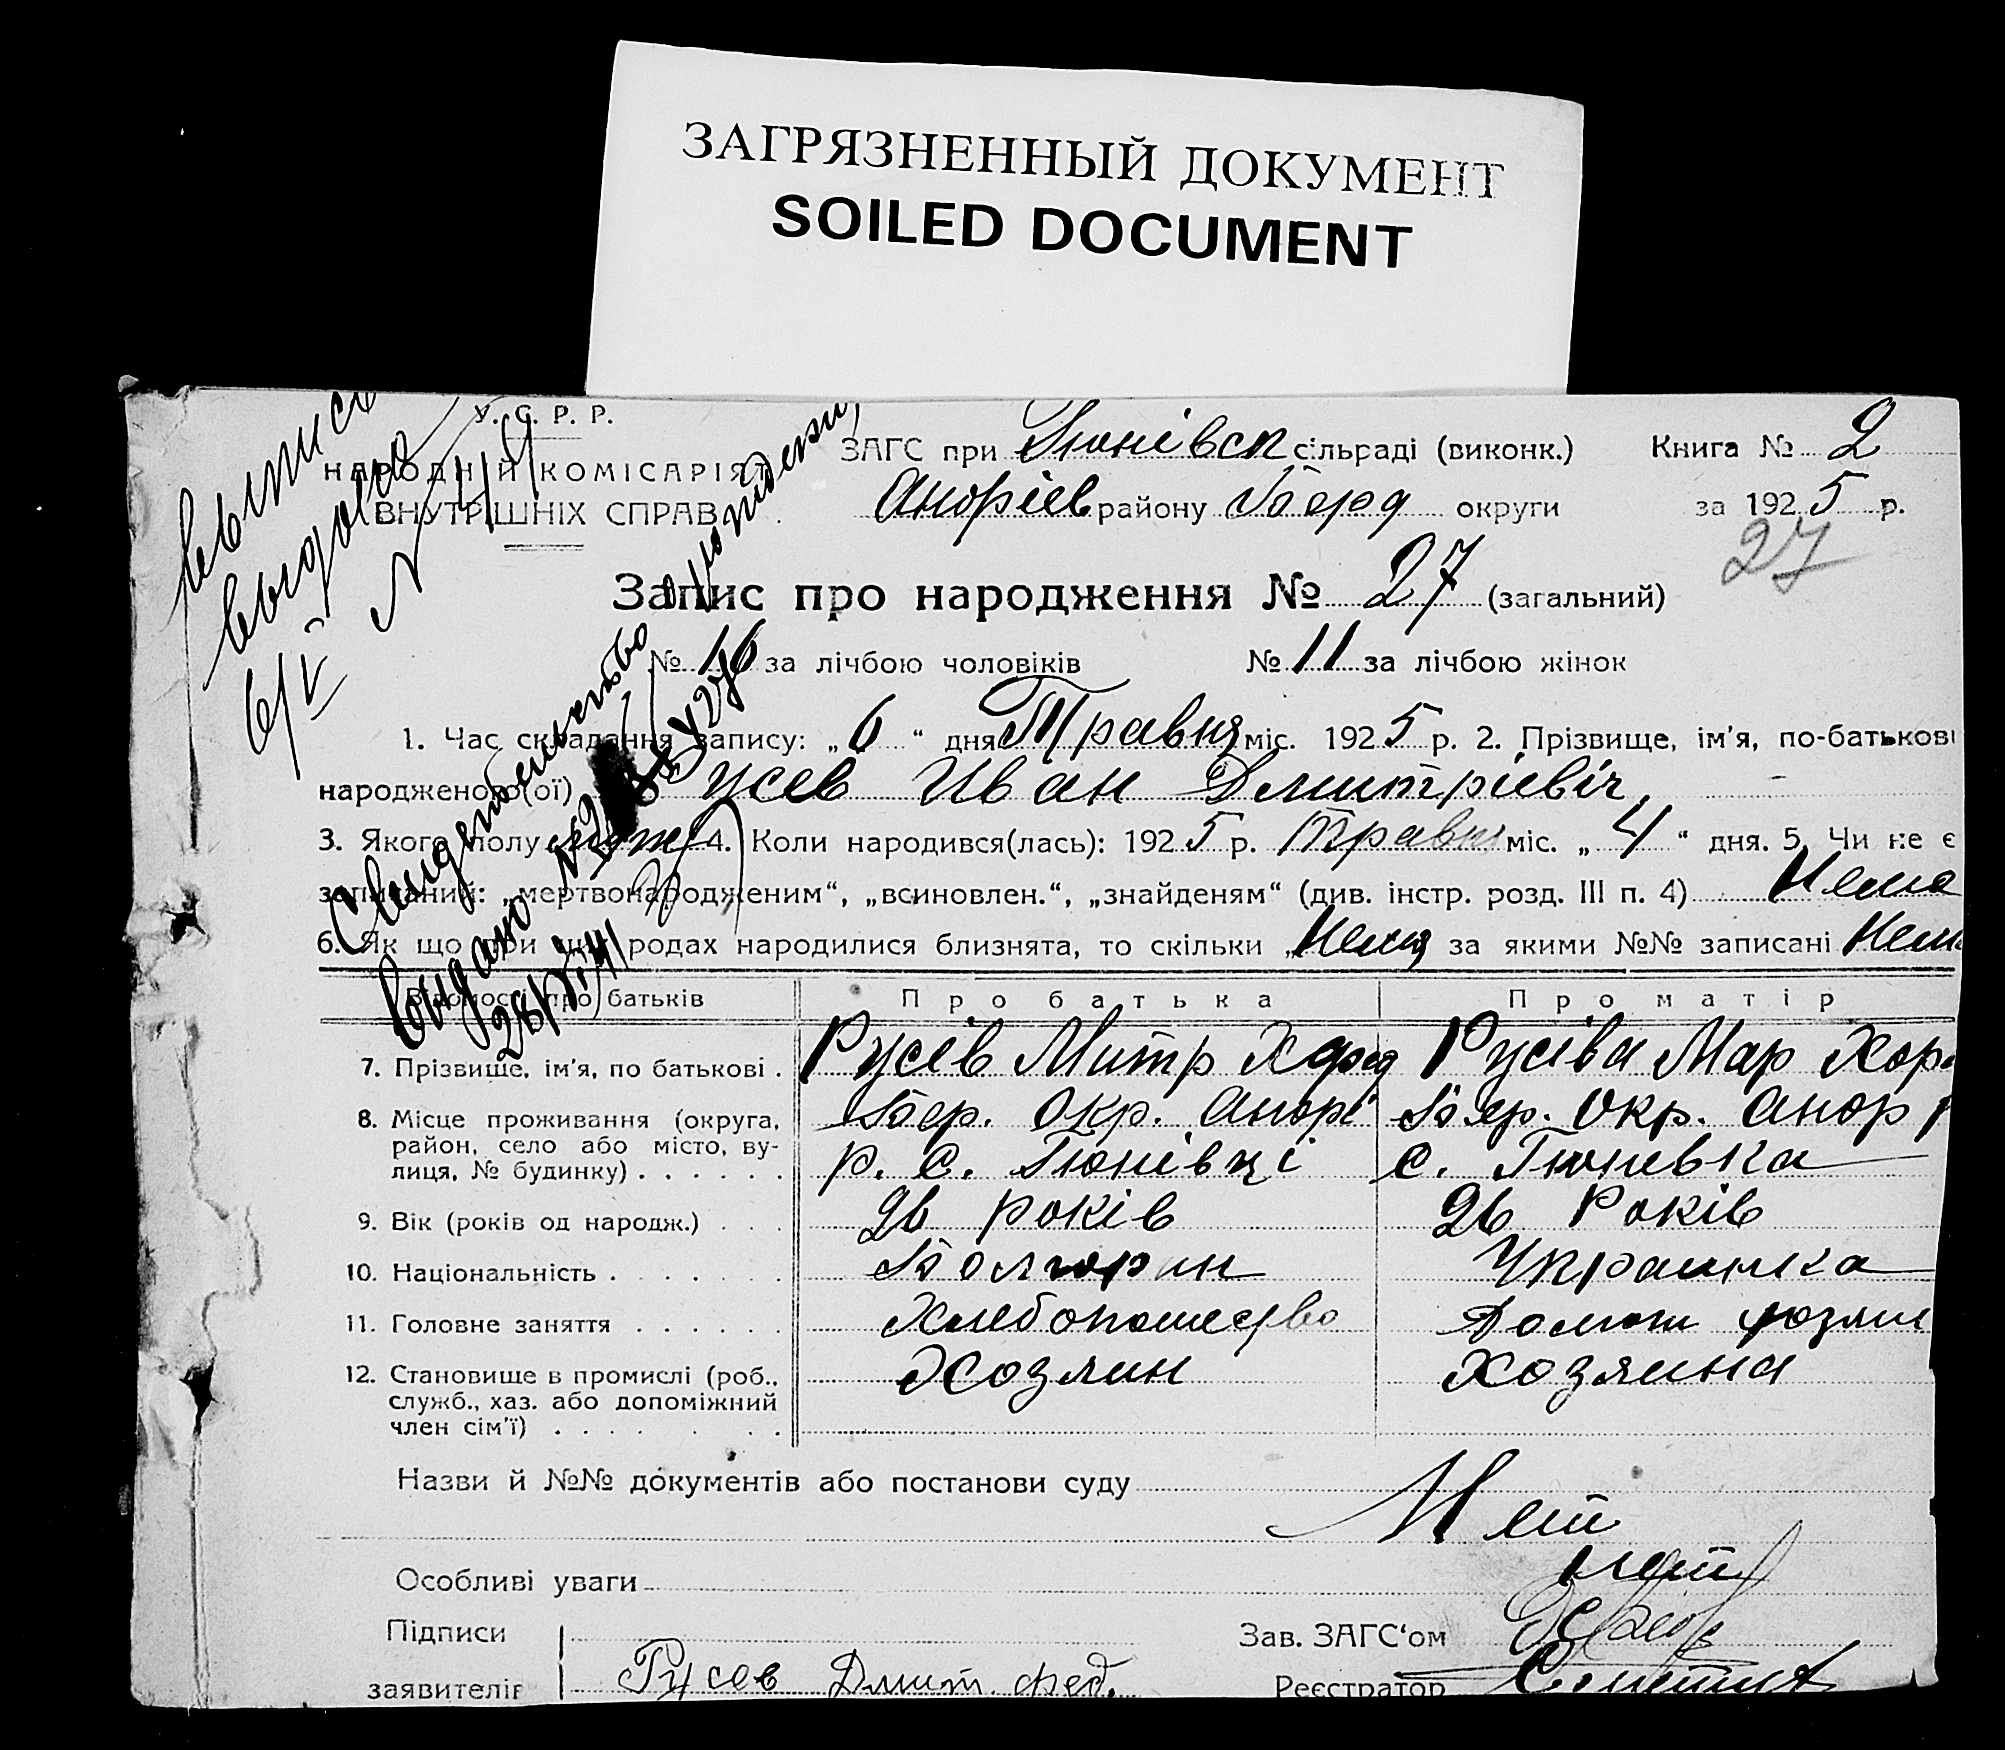 ЗАГРЯЗНЕННЫЙ ДОКУМЕНТ
SOILED DOCUMENT
У. С. Р. Р.
НАРОДНІЙ КОМІСАРІЯТ
ВНУТРІШНІХ СПРАВ
выпись
выдана
6/V
N 44
ЗАГС при Тюнівск сільраді (виконк.) Книга № 2
Андріев району Берд округи за 1925 р.
27
Запис про народження № 27 (загальний)
№ 16 за лічбою чоловіків № 11 за лічбою жінок
1. Час складання запису: „6“ дня Травня міс. 1925 р. 2. Прізвище, ім'я, по-батькові
народженого(ої) Русев Иван Дмитріевіч
3. Якого полу муж 4. Коли народився(лась): 1925 р. Травня міс. „4“ дня. 5. Чи не є
записаний: „мертвонародженим“, „всиновлен.“, „знайденям“ (див. інстр. розд. III п. 4) Нема
6. Як що при цих родах народилися близнята, то скільки „Нема за якими №№ записані Нема
Свидетельство о рождении
выдано
28/V 41
Відомості про батьків Про батька Про матір
7. Прізвище, ім'я, по батькові . Русев Митр Хфед Русіва Мар Хор
8. Місце проживання (округа, Бер. Окр. Андрі Бер. Окр. Андр
район, село або місто, ву- р. с. Тюнівці с. Тюневка
лиця, № будинку) . . . . . .
9. Вік (років од народж.) . . . 26 років 26 Років
10. Національність . . . . . . . Болгарин Украинка
11. Головне заняття . . . . . . Хлебопашество Домаш хозяи
12. Становище в промислі (роб., Хозяин Хозяина
служб., хаз. або допоміжний
член сім'ї) . . . . . . . .
Назви й №№ документів або постанови суду
Нет
Особливі уваги нет
Підписи Зав. ЗАГС'ом
заявителів Русев Дмит. фед. Реєстратор